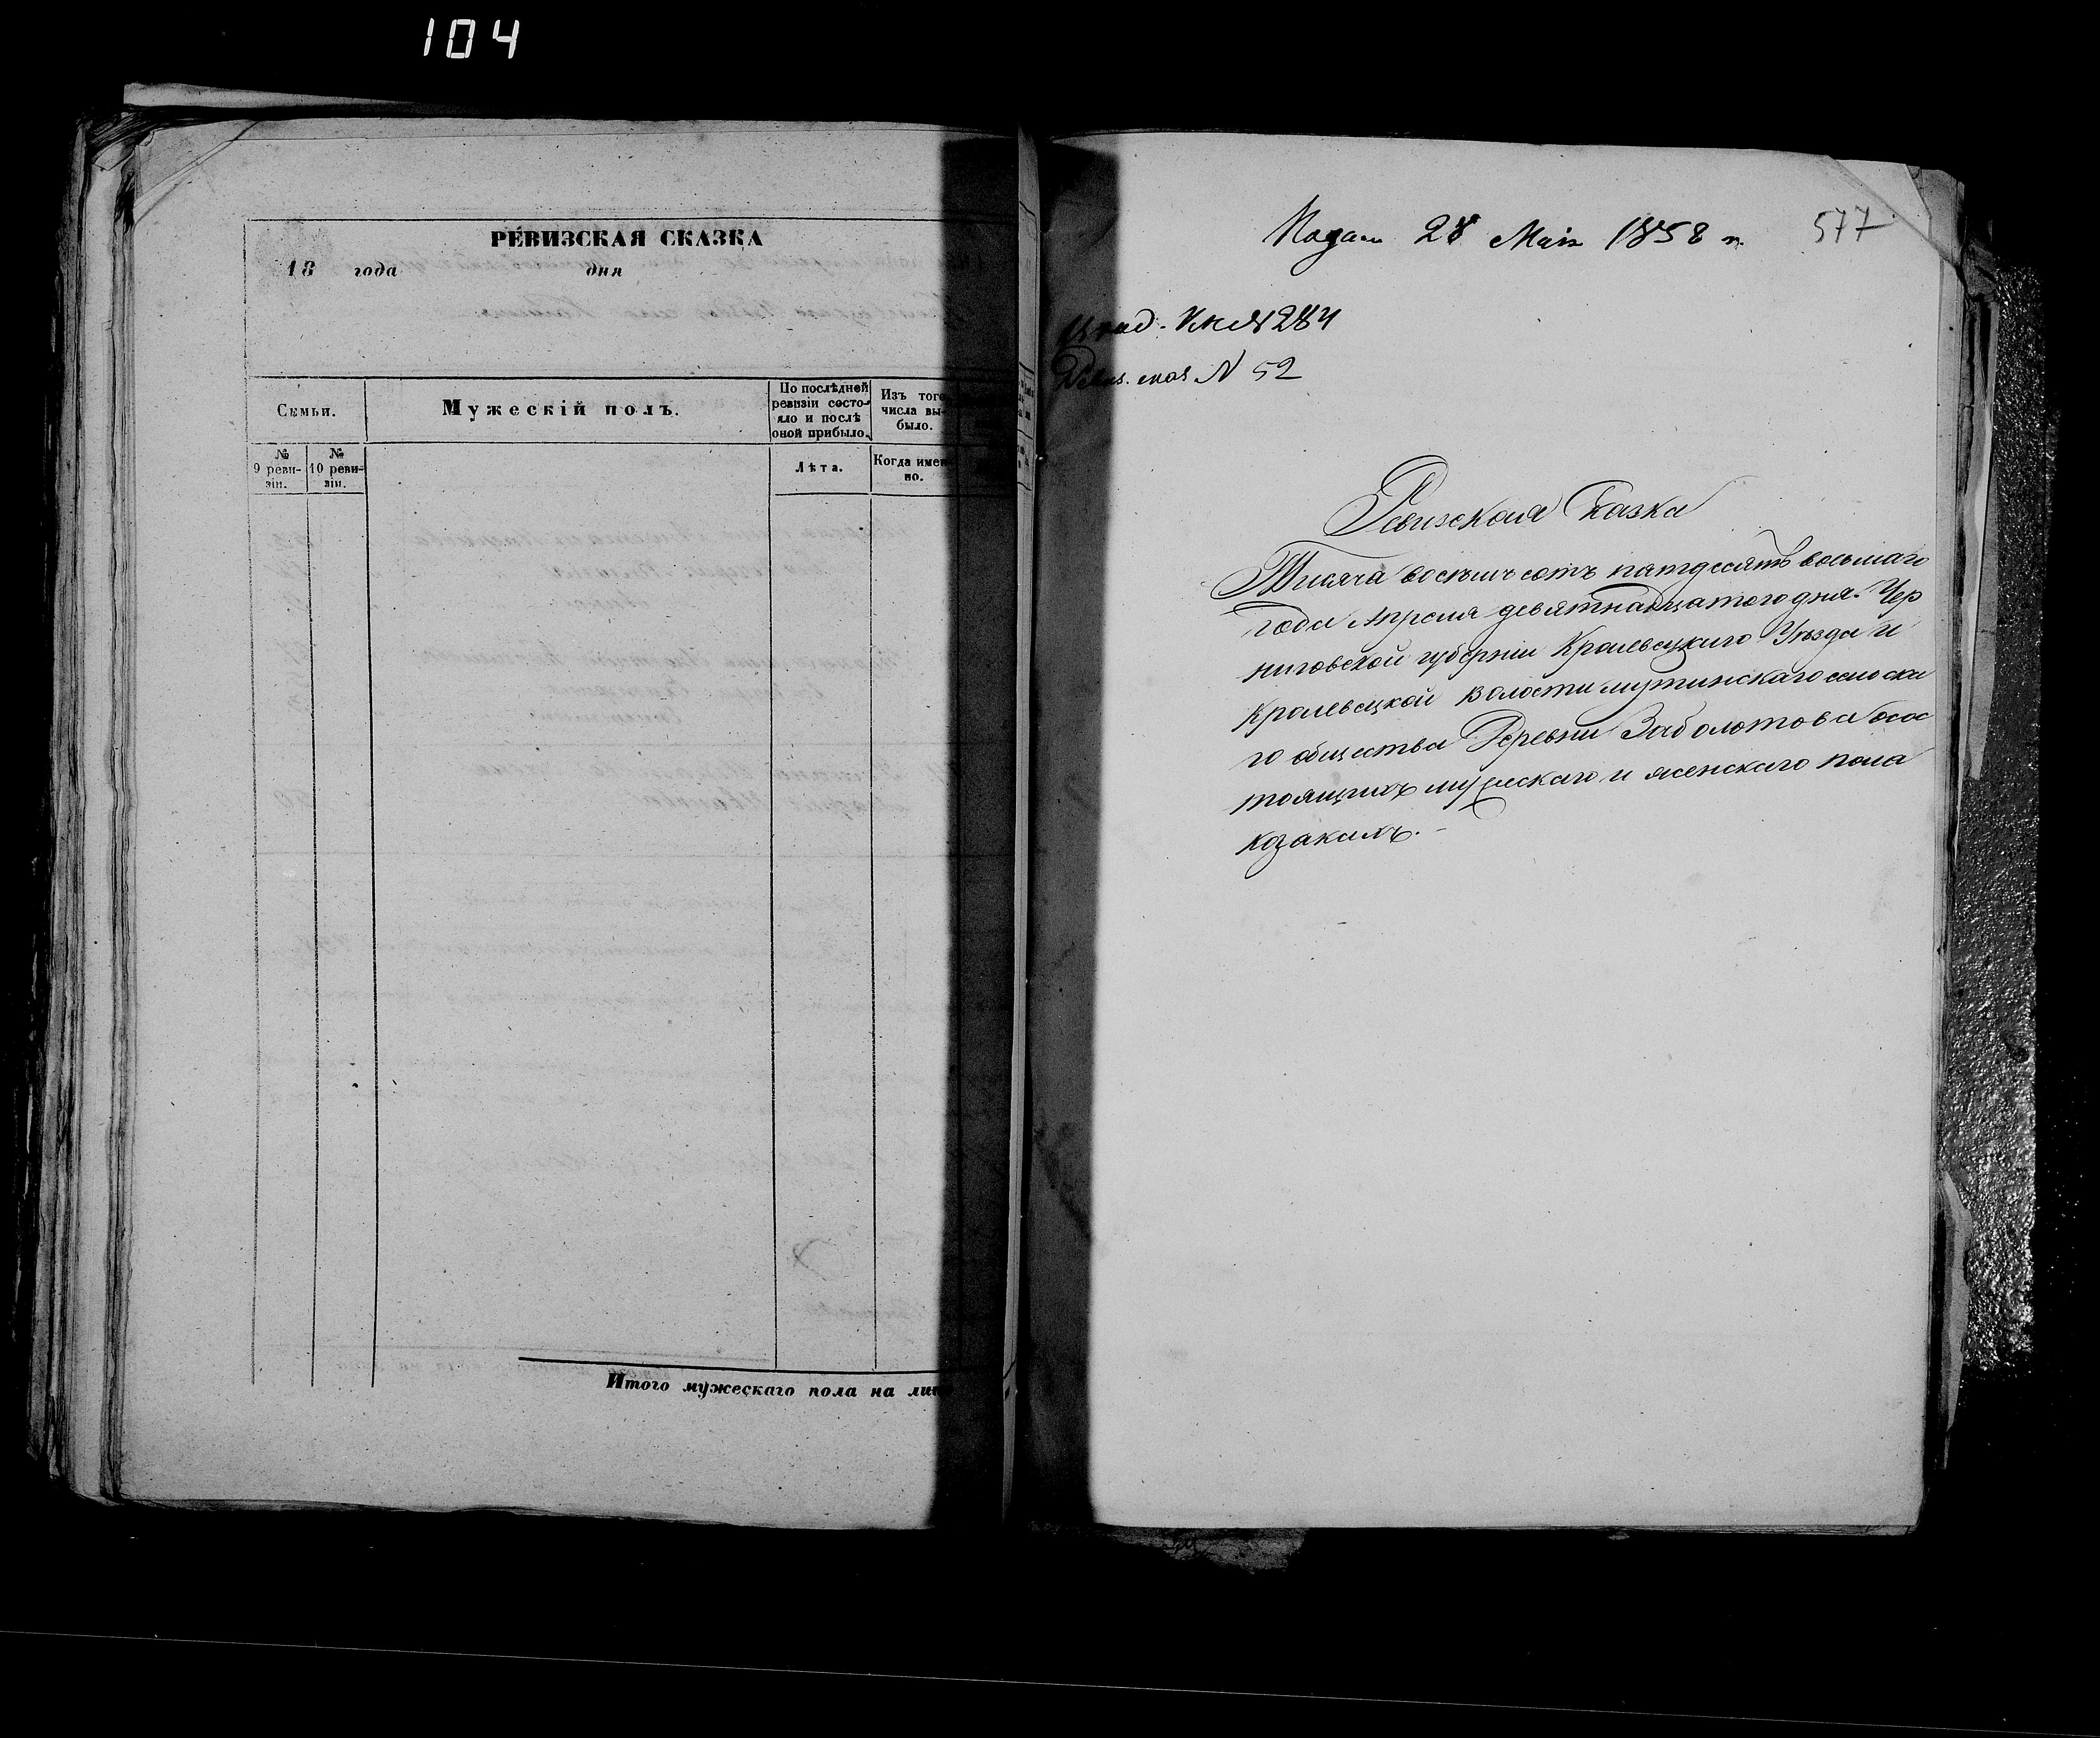 104
РЕВИЗСКАЯ СКАЗКА
18 года дня
Семьи.
Мужескій полъ.
По послѣдней
ревизіи состо-
яло и послѣ
оной прибыло.
Изъ того
числа вы-
было.
№
9 реви-
зіи.
№
10 реви-
зіи.
Лѣта.
Когда имен-
но.
Итого мужескаго пола на лицо
Подан 28 Мая 1858 г.
577
№ 284
№ 52
Ревизская Сказка
Тисяча восемъ сотъ пятдесятъ восьмаго
года Апреля девятнадцатого дня. Чер
ниговской губерніи Кролевецкаго Уѣзда и
Кролевецкой волости мутинскаго сельска
го общества Деревни Заболотова о сос
тоящихъ мужескаго и женскаго пола
козакахъ.